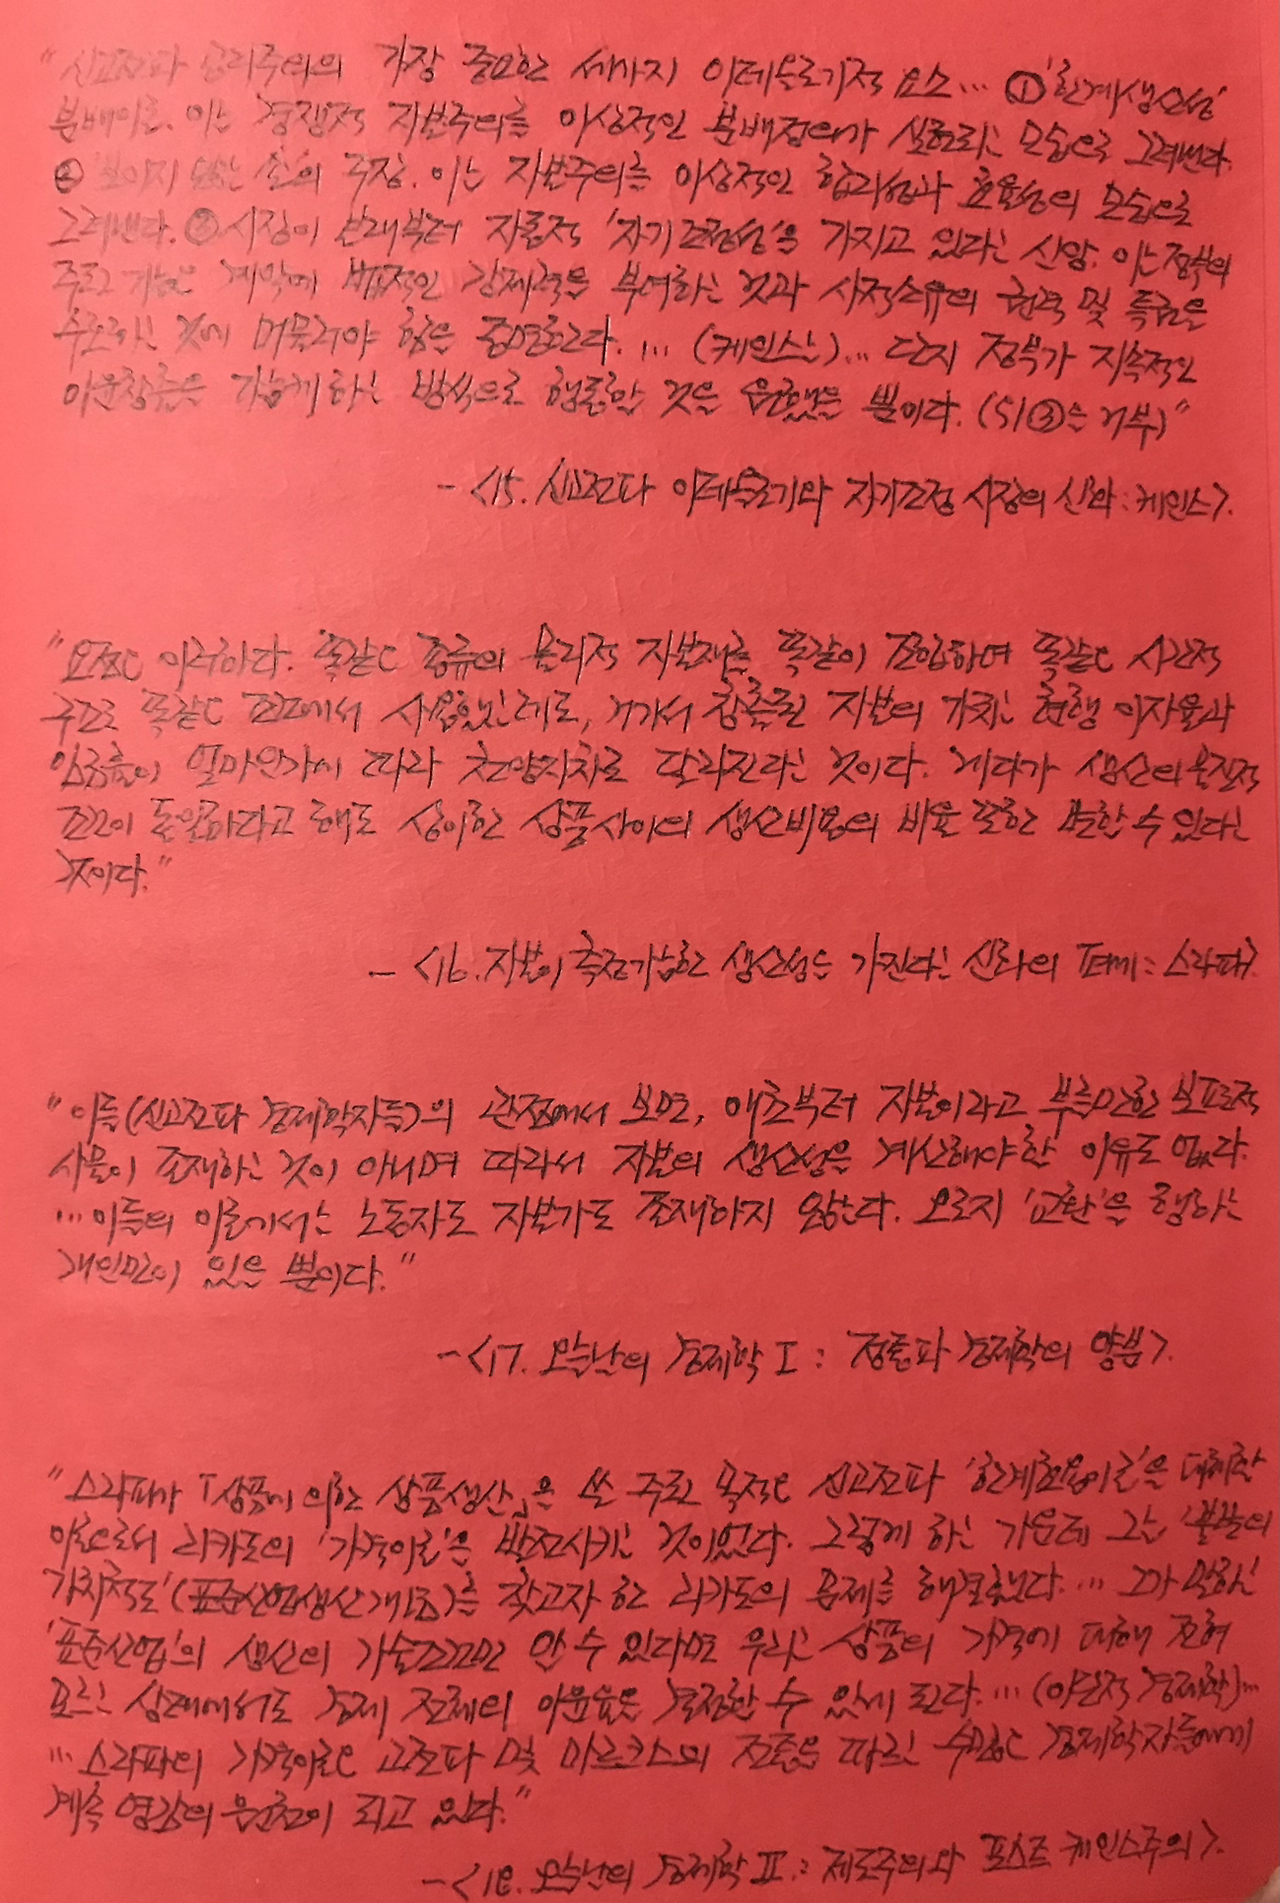 "신고전파 공리주의의 가장 중요한 세가지 이데올로기적 요소... ①'한계생산성'
분배이론. 이는 경쟁적 자본주의를 이상적인 분배정의가 실현되는 모습으로 그려낸다.
② '보이지 않는 손'의 주장. 이는 자본주의를 이상적인 합리성과 효율성의 모습으로
그려낸다. ③ 시장이 본래부터 자동적 '자기조정성'을 가지고 있다는 신앙. 이는 정부의
주된 기능은 계약에 법적인 강제력을 부여하는 것과 사적소유의 권력 및 특권을
수호하는 것에 머물러야 함을 증명한다. ... (케인스는)... 단지 정부가 지속적인
이윤창출을 가능케 하는 방식으로 행동할 것을 원했을 뿐이다. (S/③는 거부)"
-<15. 신고전파 이데올로기와 자기조정 시장의 신화: 케인스>.
"요점은 이러하다. 똑같은 종류의 물리적 자본재를 똑같이 조합하여 똑같은 시간적
구조로 똑같은 조건에서 사용했는데도, 거기서 창출된 자본의 가치는 현행 이자율과
임금률이 얼마인가에 따라 천양지차로 달라진다는 것이다. 게다가 생산의 물질적
조건이 동일하다고 해도 상이한 상품 사이의 생산비용의 비율 또한 변할 수 있다는
것이다."
- <16. 자본이 측정가능한 생산성을 가진다는 신화의 폐기: 스라파>
"이들(신고전파 경제학자들)의 관점에서 보면, 애초부터 자본이라고 부를만한 보편적
사물이 존재하는 것이 아니며 따라서 자본의 생산성을 계산해야 할 이유도 없다.
...이들의 이론에서는 노동자도 자본가도 존재하지 않는다. 오로지 '교환'을 행하는
개인만이 있을 뿐이다."
-<17. 오늘날의 경제학 Ⅰ: 정통파 경제학의 양분>.
"스라파가 「상품에 의한 상품생산」을 쓴 주된 목적은 신고전파 '한계효용이론'을 대체할
이론으로서 리카도의 '가격이론'을 발전시키는 것이었다. 그렇게 하는 가운데 그는 '불변의
가치척도'(표준산업생산개념)를 찾고자 한 리카도의 문제를 해결했다. ... 그가 말하는
'표준산업'의 생산의 기술조건만 알 수 있다면 우리는 상품의 가격에 대해 전혀
모르는 상태에서도 경제 전체의 이윤율을 결정할 수 있게 된다. ... (이단적 경제학)...
... 스라파의 가격이론은 고전파 및 마르크스의 전통을 따르는 수많은 경제학자들에게
계속 영감의 원천이 되고 있다."
-<18. 오늘날의 경제학 Ⅱ: 제도주의와 포스트 케인스주의>.